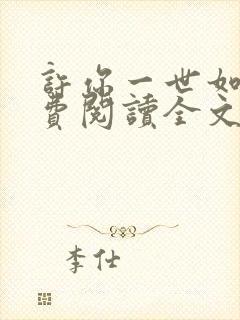 許你一世如
費閱讀全文
李仕